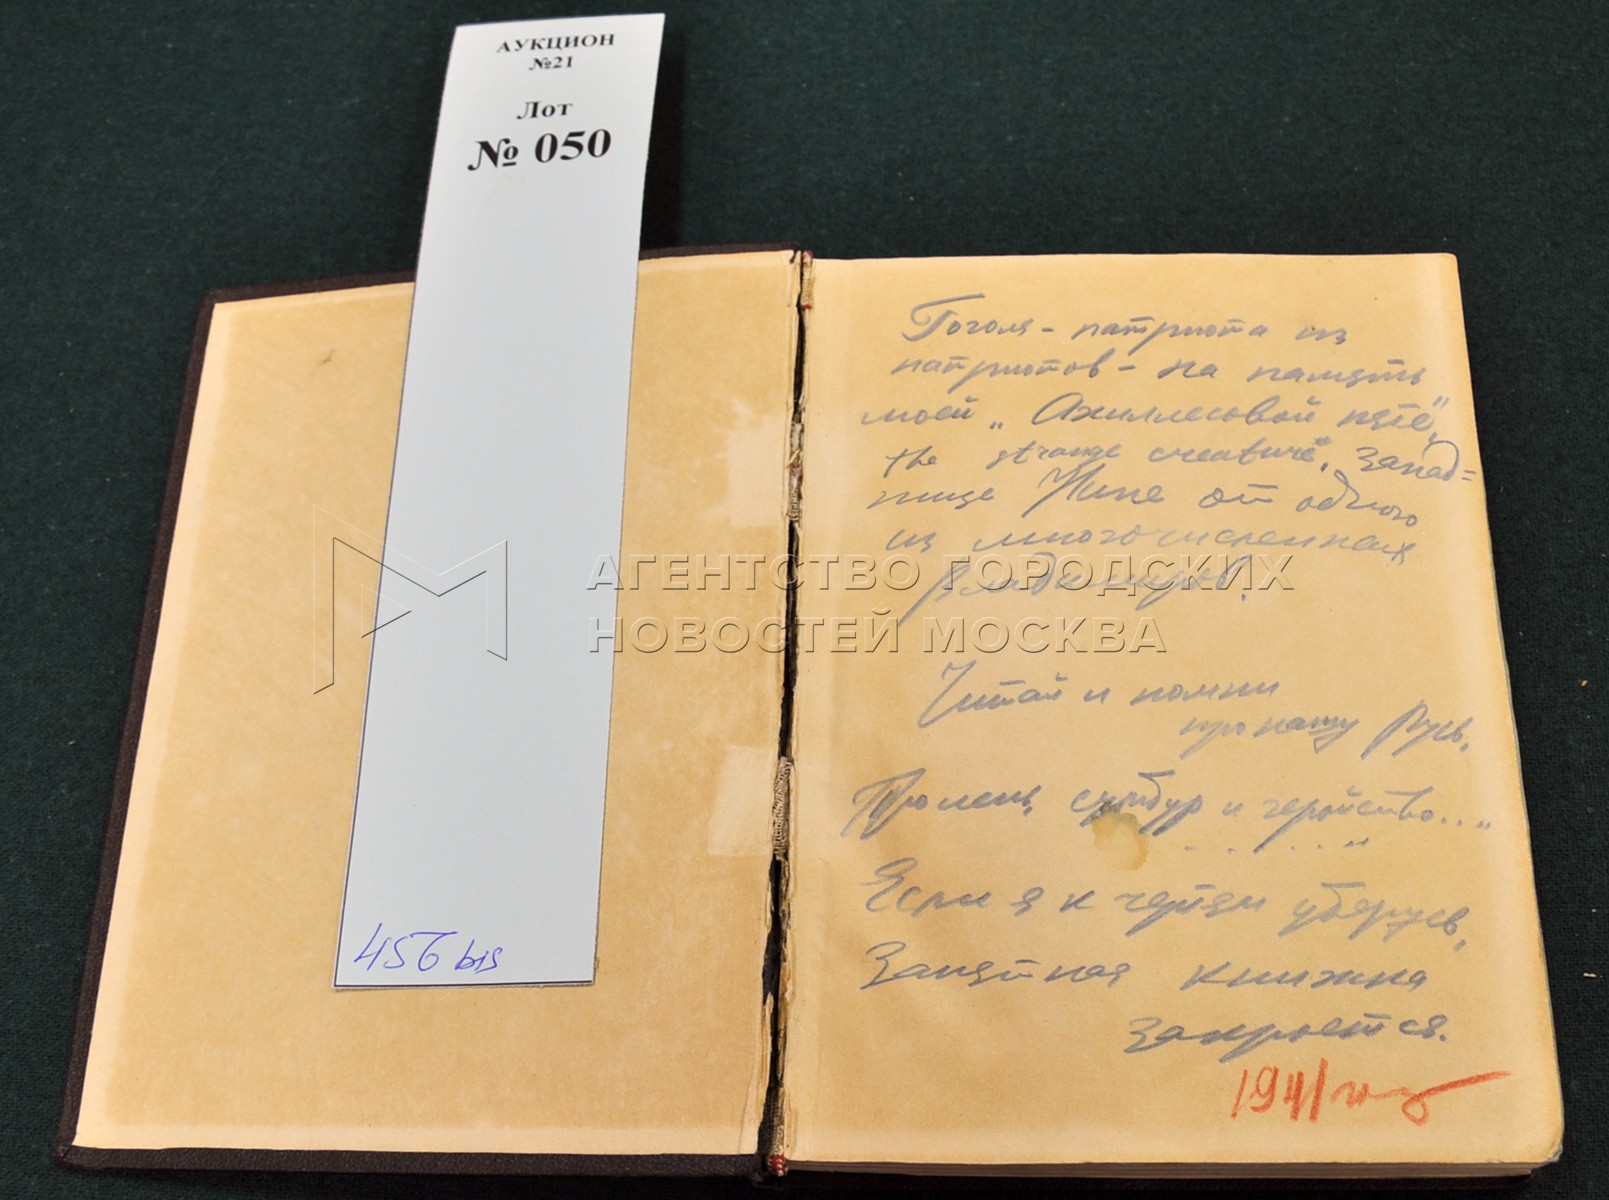 АУКЦИОН
№21
Лот
№ 050
456 bis
Гоголя - патриота из
патриотов - на память
моей „Ахиллесовой пяте",
the strange creature", запад=
нице Нине от одного
из многочисленных
Владимиров.
Читай и помни
про нашу Русь.
сумбур и геройство..."
Если я к чертям уберусь,
Занятная книжка
закроется.
1941 году
АГЕНТСТВО ГОРОДСКИХ
НОВОСТЕЙ МОСКВА